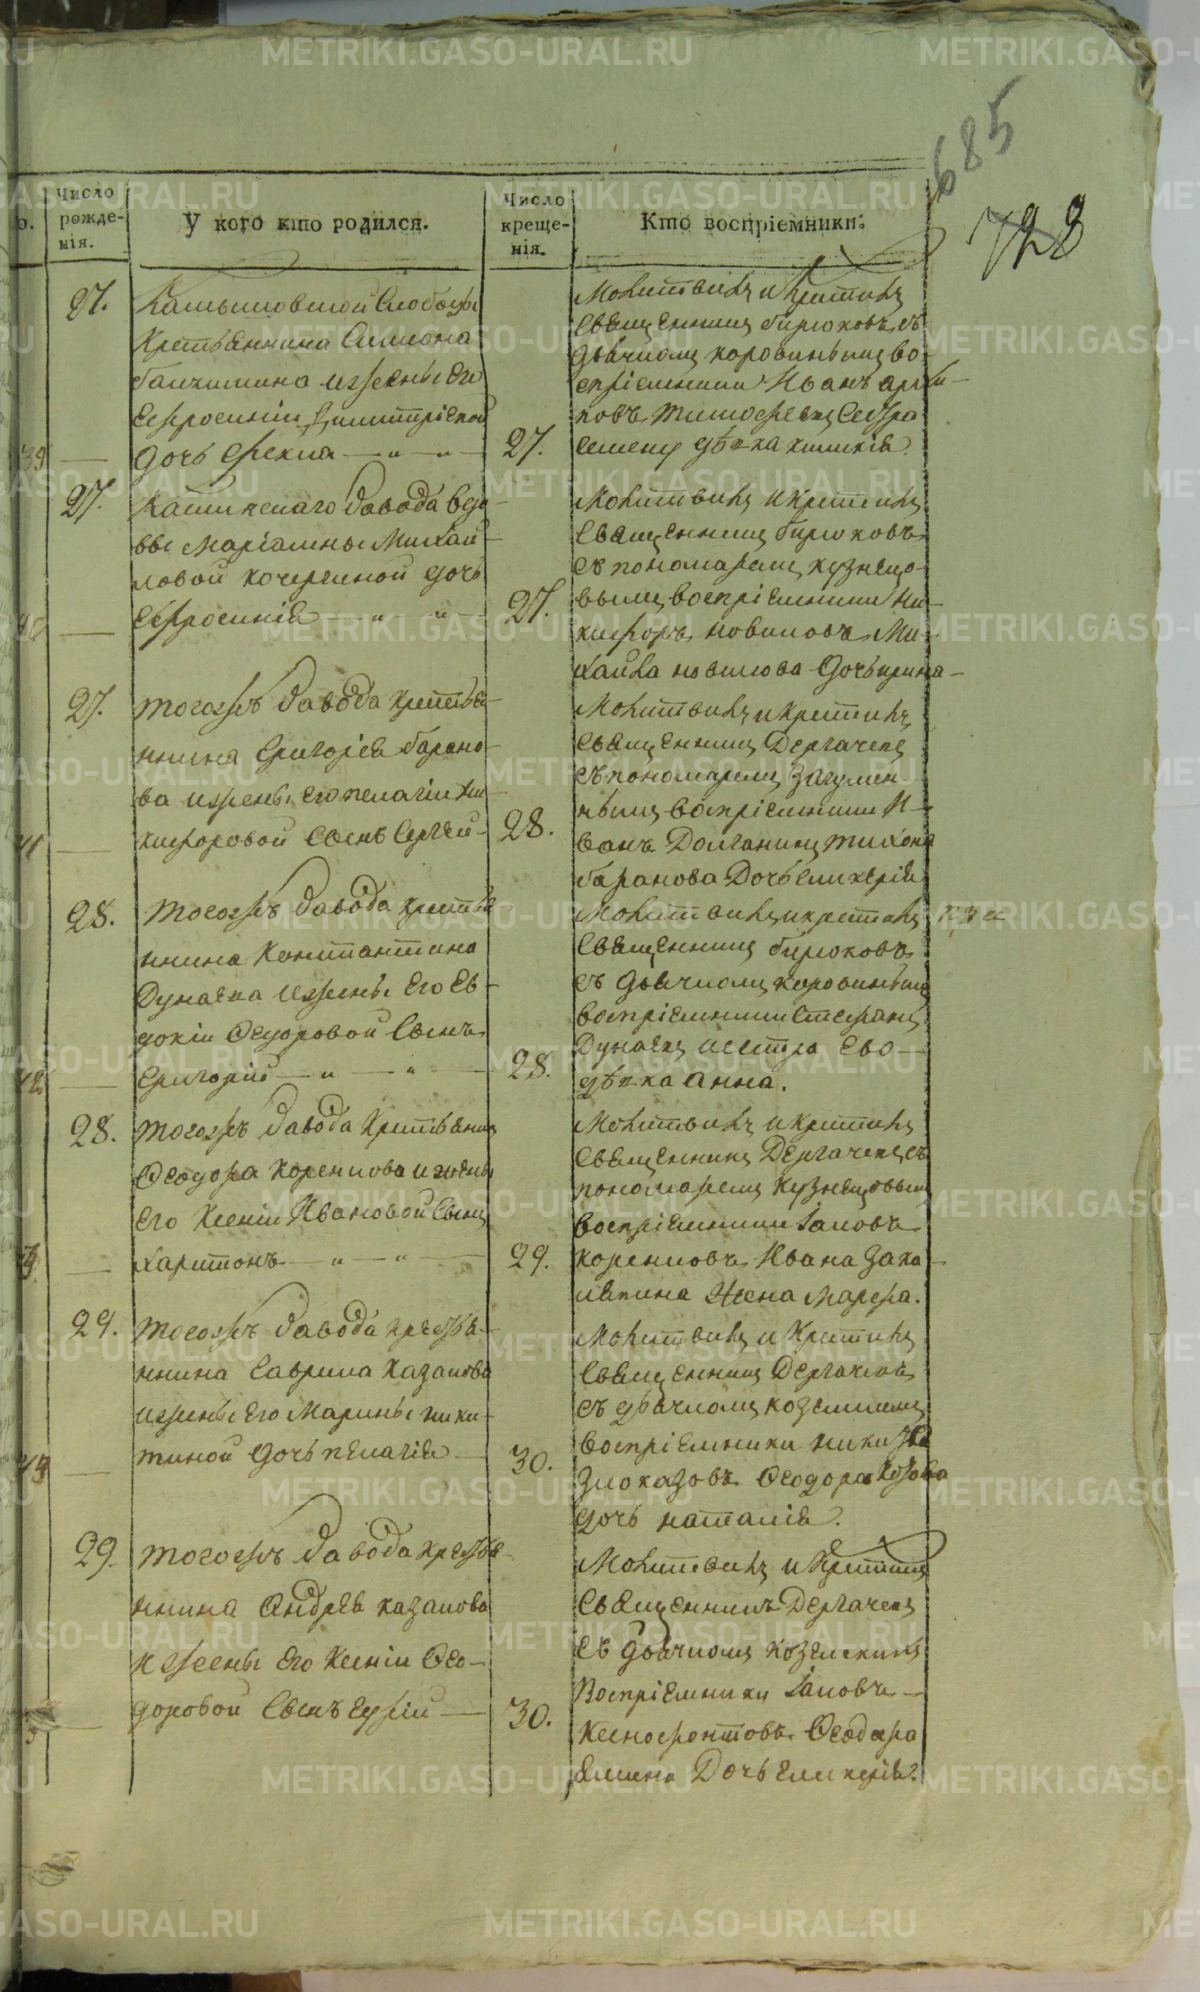 685
728
Число рожденія.
У кого кто родился.
Число крещенія.
Кто воспріемники.
27.
Камышловской Слободы
Крестьянина Симона
изжены Его
Еѵфросиніи Димитріевой
дочь Фекла
27.
Молитвилъ и Крестилъ
Священникъ бирюковъ съ
дьячкомъ коровинымъ во-
спріемники Иванъ
Тимофѣевъ Сестра
дѣвка
27.
завода вдо-
вы Маріамны Михай-
ловой кочергиной дочь
Еѵфросинія
27.
Молитвилъ и Крестилъ
Священникъ бирюковъ
съ пономаремъ кузнецо-
вымъ воспріемники Ни-
кифоръ новиковъ Ми-
хаила новикова Дочь ирина
27.
тогожъ завода кресть-
янина Григорія барано-
ва изжены его пелагіи Ни-
кифоровой Сынъ Сергѣй
28.
Молитвилъ и крестилъ
Священникъ Дергачевъ
съ пономаремъ Загумен-
нымъ воспріемники И-
ванъ Долганинъ Тихона
баранова Дочь Гликерія
28.
тогожъ завода кресть-
янина Константина
Дунаева изжены Его Ев-
докіи Ѳеодоровой Сынъ
Григорій
28.
Молитвилъ и крестилъ
Священникъ бирюковъ
съ дьячкомъ коровинымъ
воспріемники Стефанъ
Дунаевъ и сестра Его
дѣвка Анна.
28.
тогожъ завода Крестьянина
Ѳеодора Коренкова и жены
Его Ксеніи Ивановой Сынъ
Харитонъ
29.
Молитвилъ и Крестилъ
Священникъ Дергачевъ съ
пономаремъ Кузнецовымъ
воспріемники Іаковъ
Коренковъ Ивана
Жена Марѳа.
29.
тогожъ завода крестья-
нина Гаврила Казакова
изжены Его Марины ники-
тиной дочь пелагія
30.
Молитвилъ и Крестилъ
Священникъ Дергачевъ
съ дьячкомъ козельскимъ
воспріемники никита
Злоказовъ Ѳеодора
дочь наталія.
29.
тогожъ завода крестья-
нина Андрея казакова
и жены Его Ксеніи Ѳео-
доровой Сынъ Гурій
30.
Молитвилъ и Крестилъ
Священникъ Дергачевъ
съ дьячкомъ козельскимъ
Воспріемники Іаковъ
Ксенофонтовъ Ѳеодора
Дочь Гликерія.
METRIKI.GASO-URAL.RU